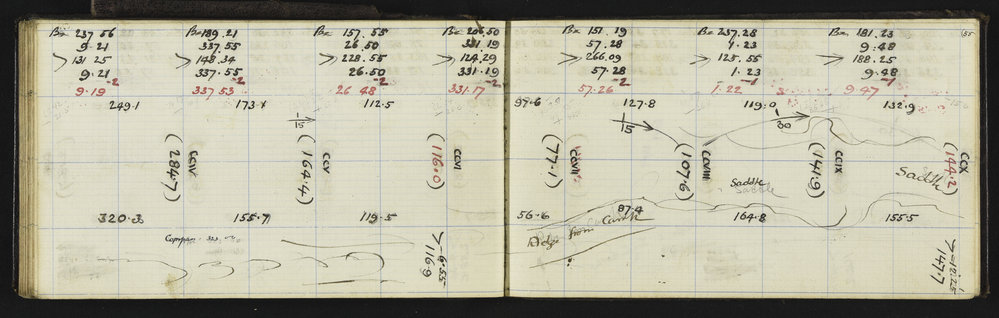 Bx 237 56
9.21
> 131 25
9.21
-2
9.19
249.1
Bx 189.21
337.55
> 148.34
337.55
-2
337 53
173.1
Bx 157.55
26.50
> 228.55
26.50
-2
26 48
112.5
Bx 206.50
331 19
> 124.29
331.19
-2
331.17
15
CCIV
(284.7)
CCV
(164.4)
CCVI
(116.0)
320.3
155.7
119.5
Compass
> 6.55
116.9
55
Bx 151.19
57.28
> 266.09
57.28
-2
57.26
97.6
127.8
Bx 237.28
1.23
> 125.55
1.23
-1
1.22
119.0
Bx 181.23
9.48
> 188.25
9.48
-1
9.47
132.9
15
30
CCVII
(77.1)
CCVIII
(107.6)
CCIX
(141.9)
CCX
(144.2)
Saddle
Saddle
56.6
87.4
164.8
155.5
Ridge from Camp
> -12.25
147.7